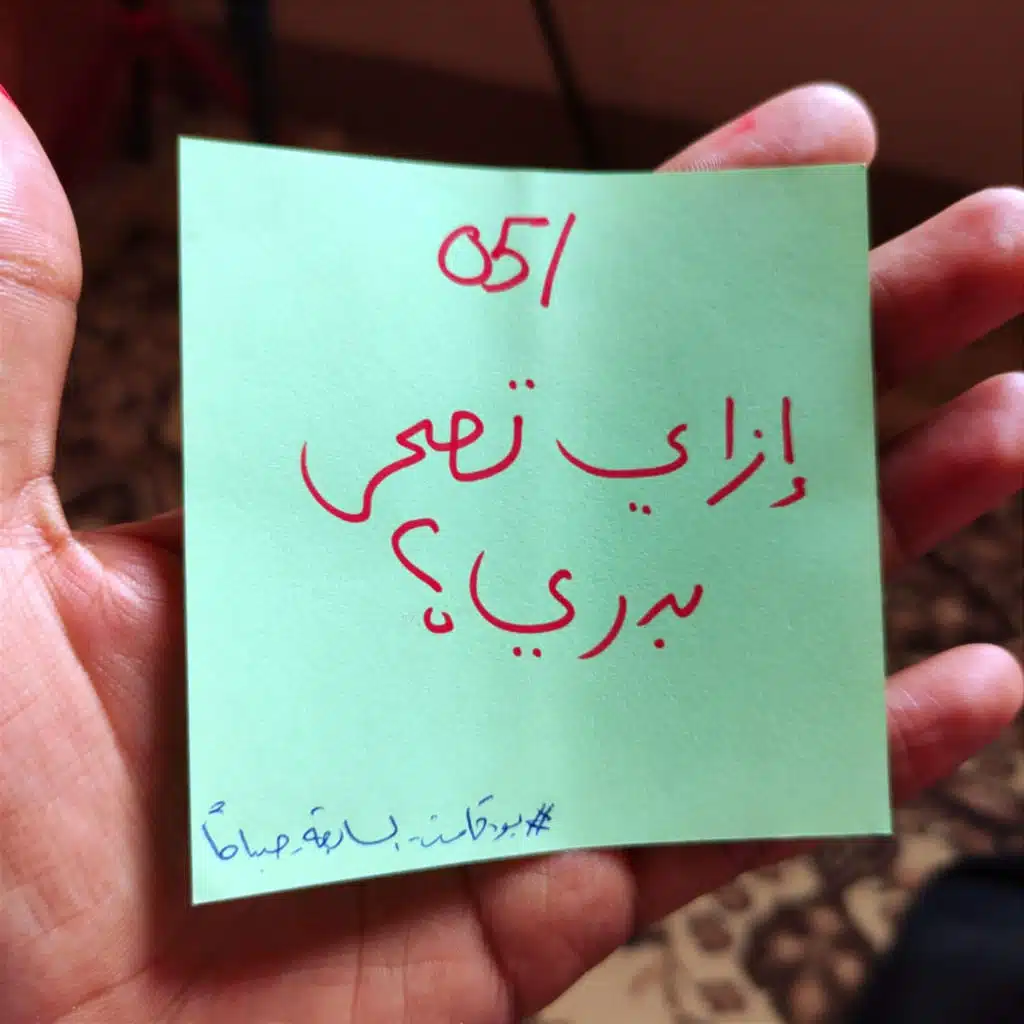 05/
إزاي تصحى
بدري؟
#بودكاست_السابعة_صباحًا